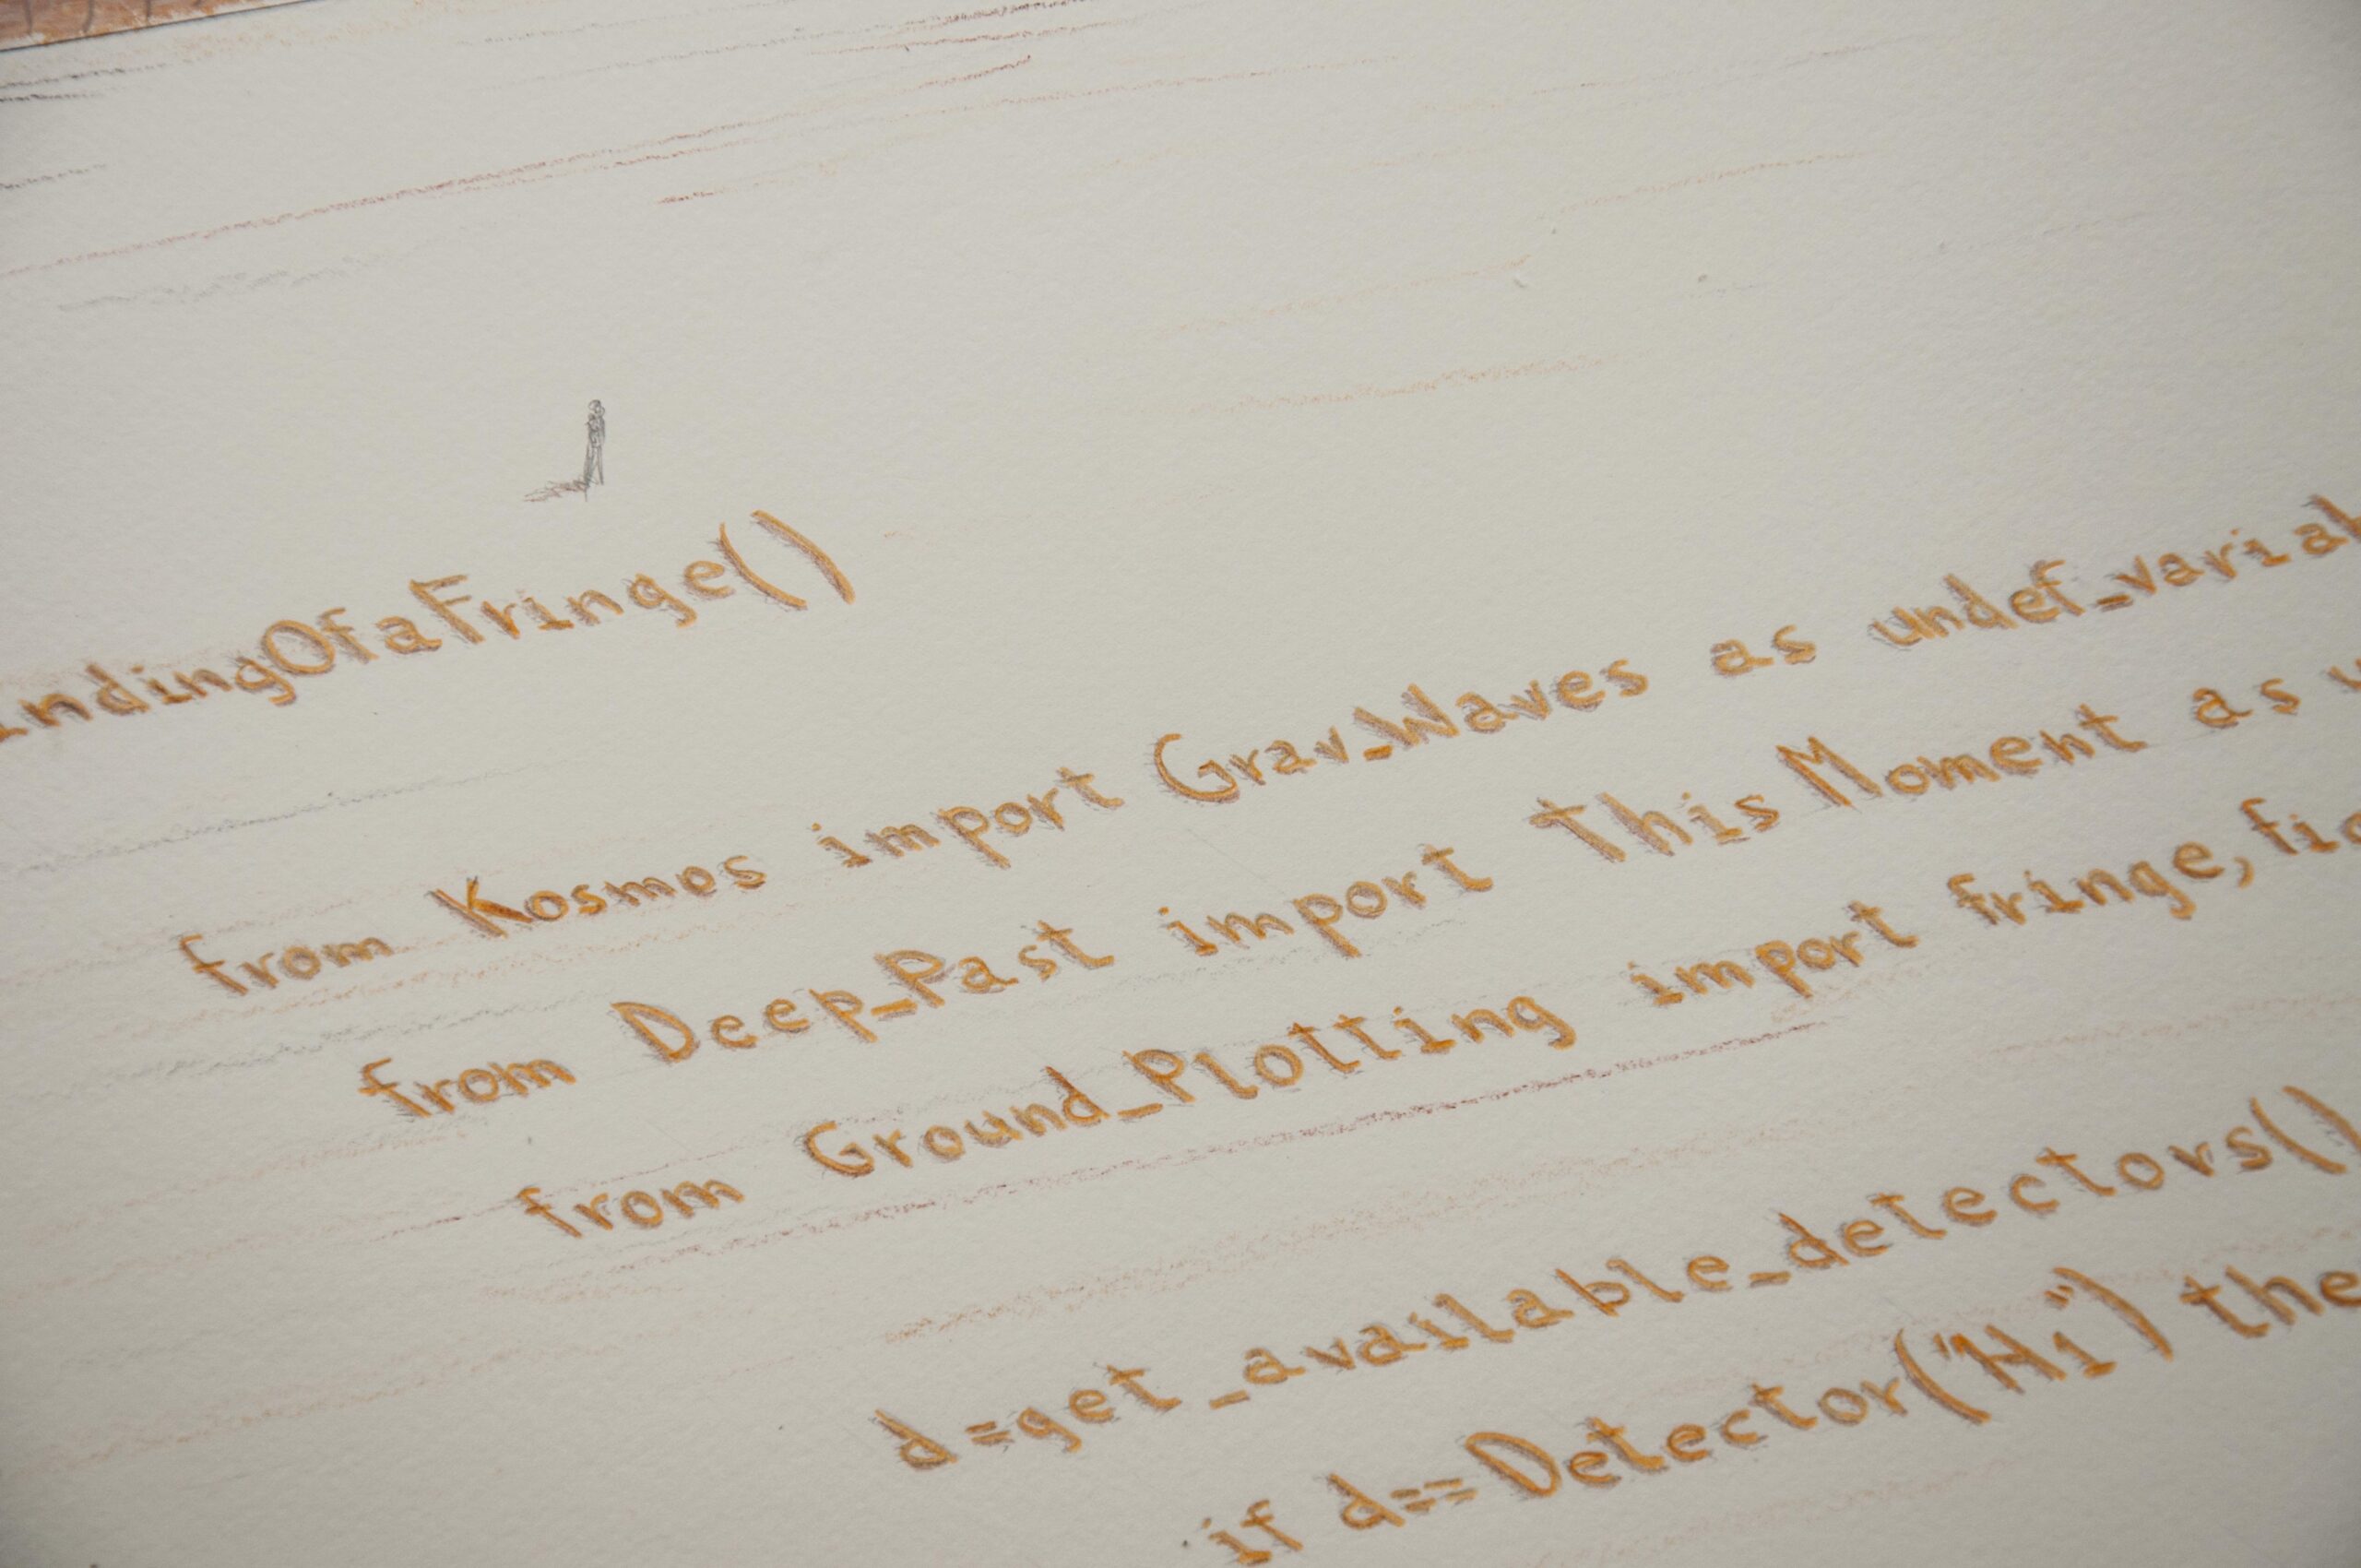 indingOfaFringe()
from Kosmos import Grav_Waves as undef_variab
from Deep_Past import This Moment as
from Ground_Plotting import fringe, fig
d=get_available_detectors()
if d==Detector("Hi") the